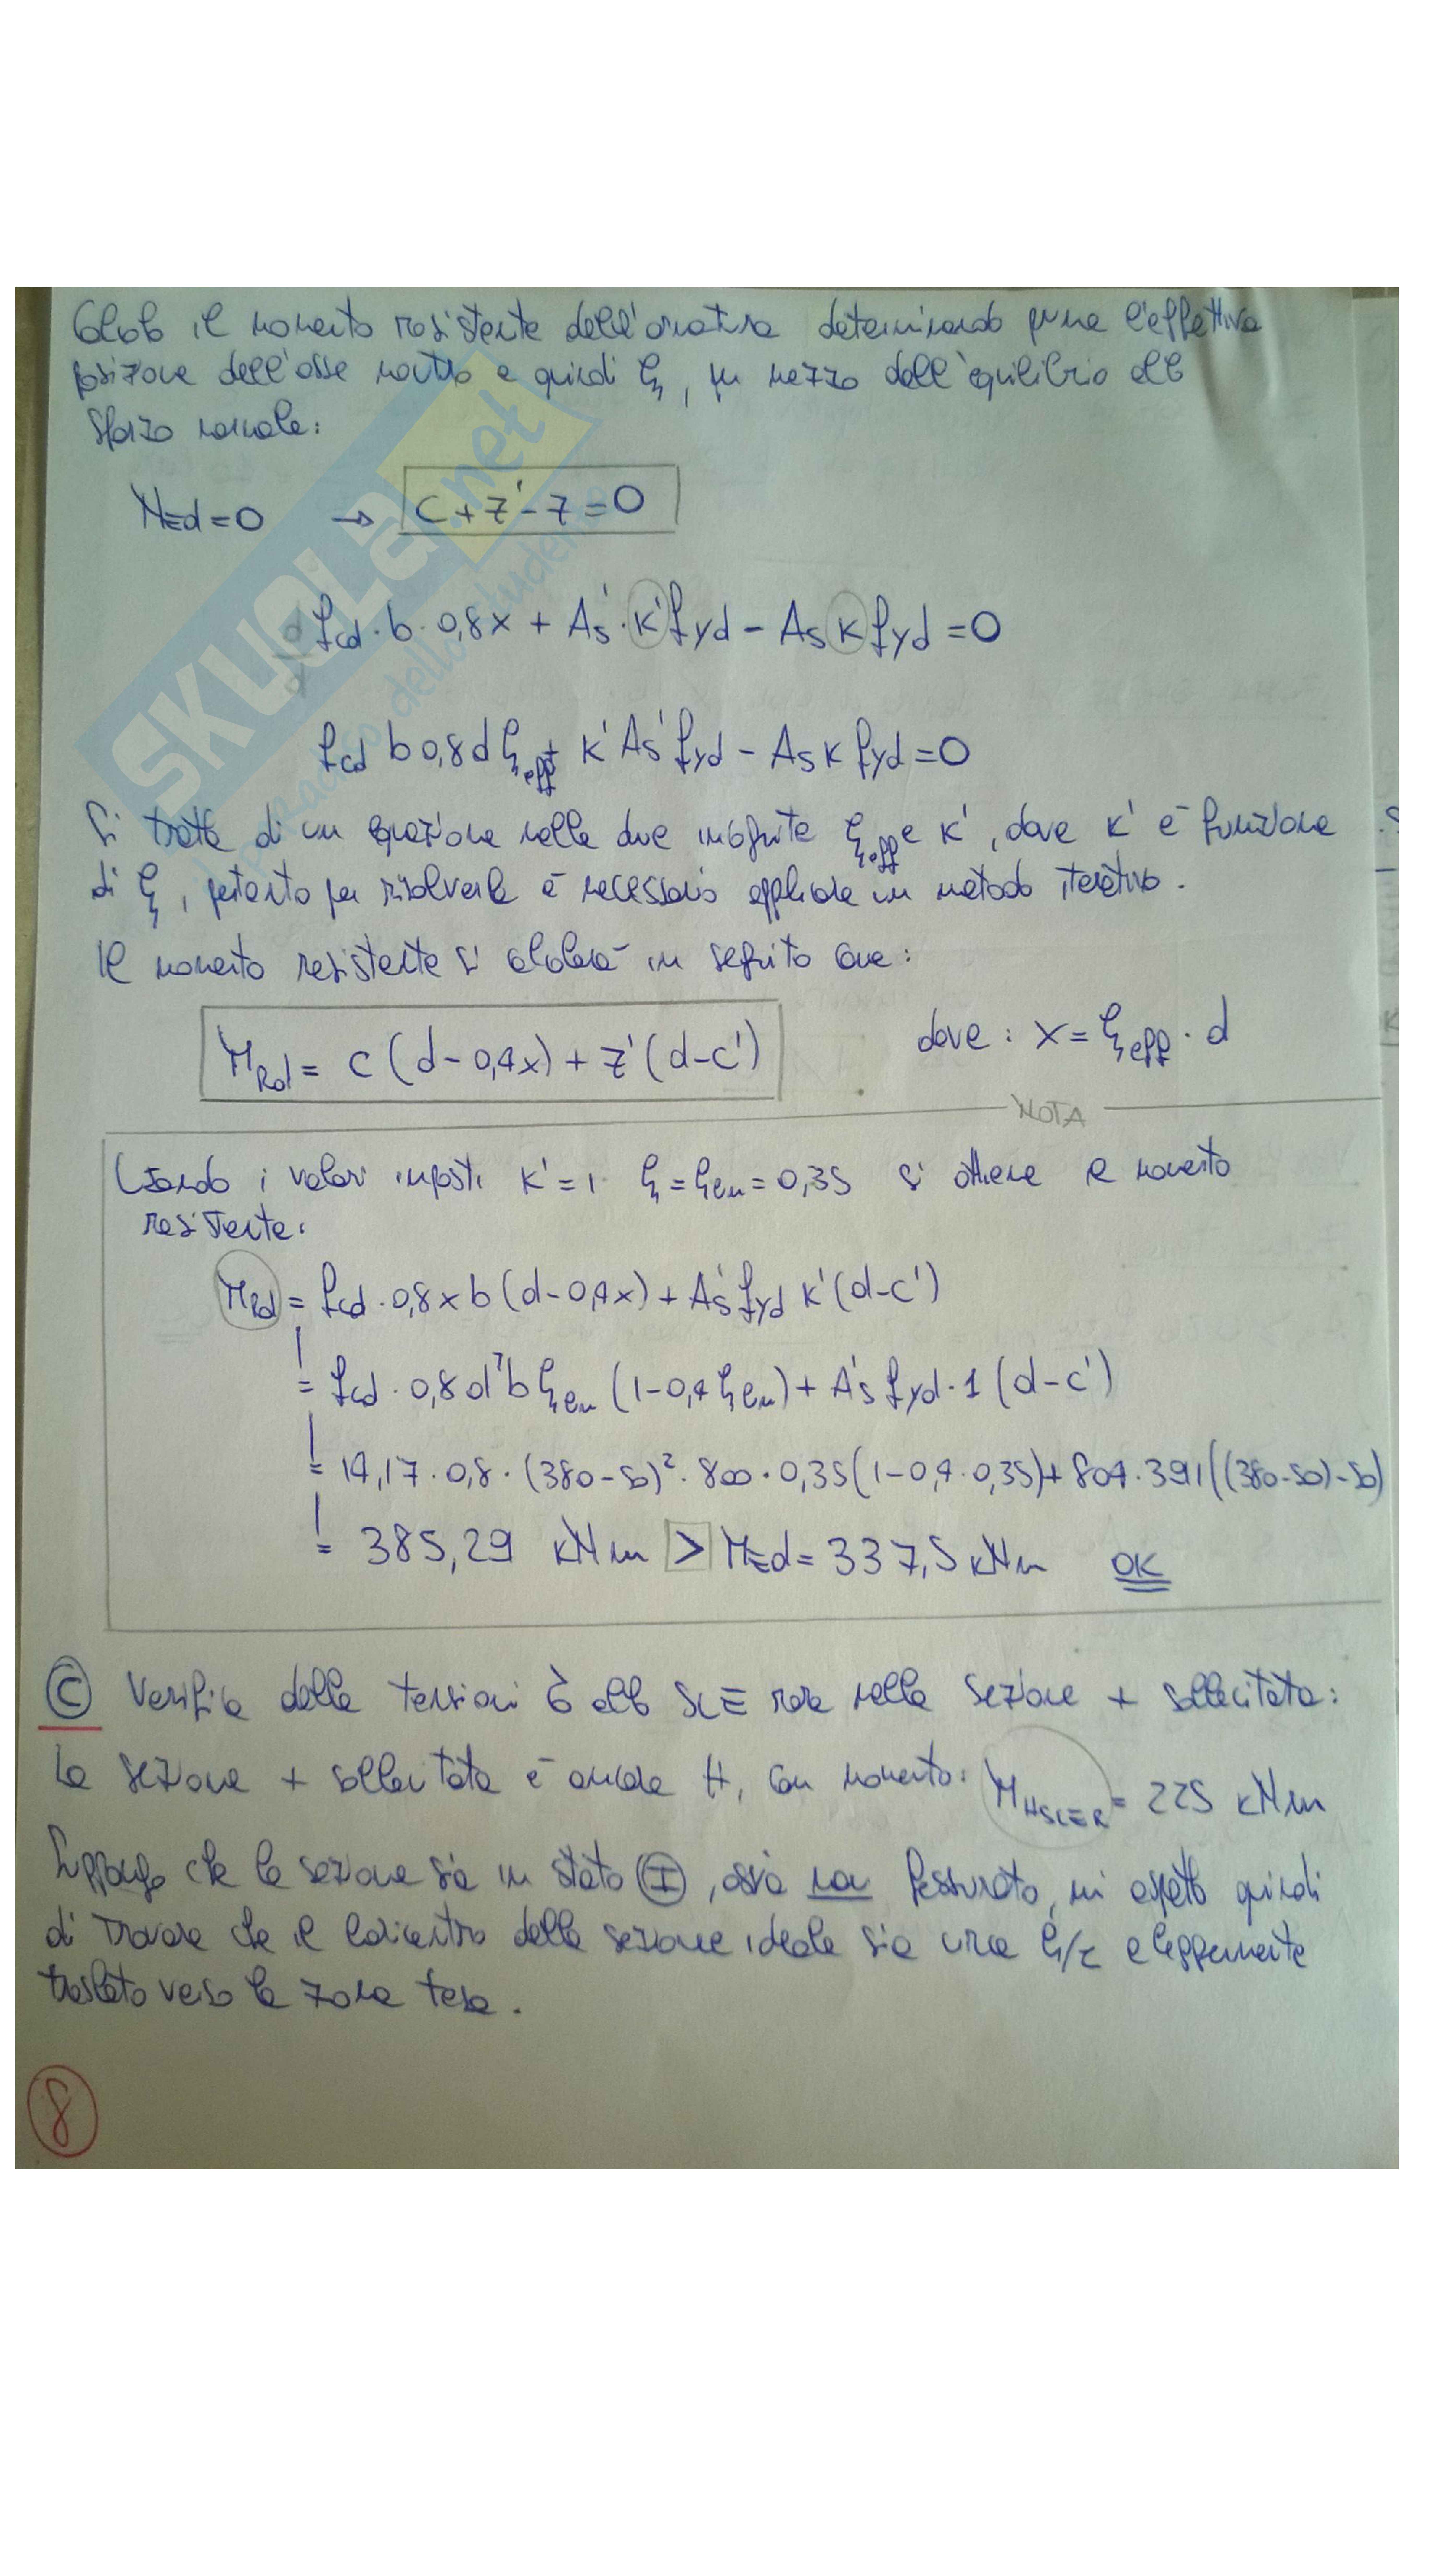 Calcolo il momento resistente dell'armatura determinando prima l'effettiva
posizione dell'asse neutro e quindi ξ, per mezzo dell'equilibrio allo
sforzo normale:
N_Ed = 0 → C + Z' - Z = 0
f_cd · b · 0,8x + A_s' · k' f_yd - A_s k f_yd = 0
f_cd b 0,8 d ξ_eff + k' A_s' f_yd - A_s k f_yd = 0
Si tratta di un equazione nelle due incognite ξ_eff e k', dove k' è funzione
di ξ, pertanto per risolverla è necessario applicare un metodo iterativo.
Il momento resistente si calcolerà in seguito come:
M_Rd = C (d - 0,4x) + Z' (d - c') dove: x = ξ_eff · d
NOTA
Usando i valori imposti k' = 1 ξ = ξ_lim = 0,35 si ottiene il momento
resistente:
M_Rd = f_cd · 0,8 x b (d - 0,4x) + A_s' f_yd k' (d - c')
= f_cd · 0,8 d² b ξ_lim (1 - 0,4 ξ_lim) + A_s' f_yd · 1 (d - c')
= 14,17 · 0,8 · (380 - 50)² · 800 · 0,35 (1 - 0,4 · 0,35) + 804 · 391 ((380 - 50) - 50)
= 385,29 kNm > M_Ed = 337,5 kNm OK
C Verifica delle tensioni σ allo SLE rara nella sezione + sollecitata:
La sezione + sollecitata è ancora H, con momento: M_HSLER = 225 kNm
Suppongo che la sezione sia in stato I, ossia non fessurato, mi aspetto quindi
di trovare che il baricentro della sezione ideale sia circa h/2 e leggermente
traslato verso la zona tesa.
8
SKUOLA.net